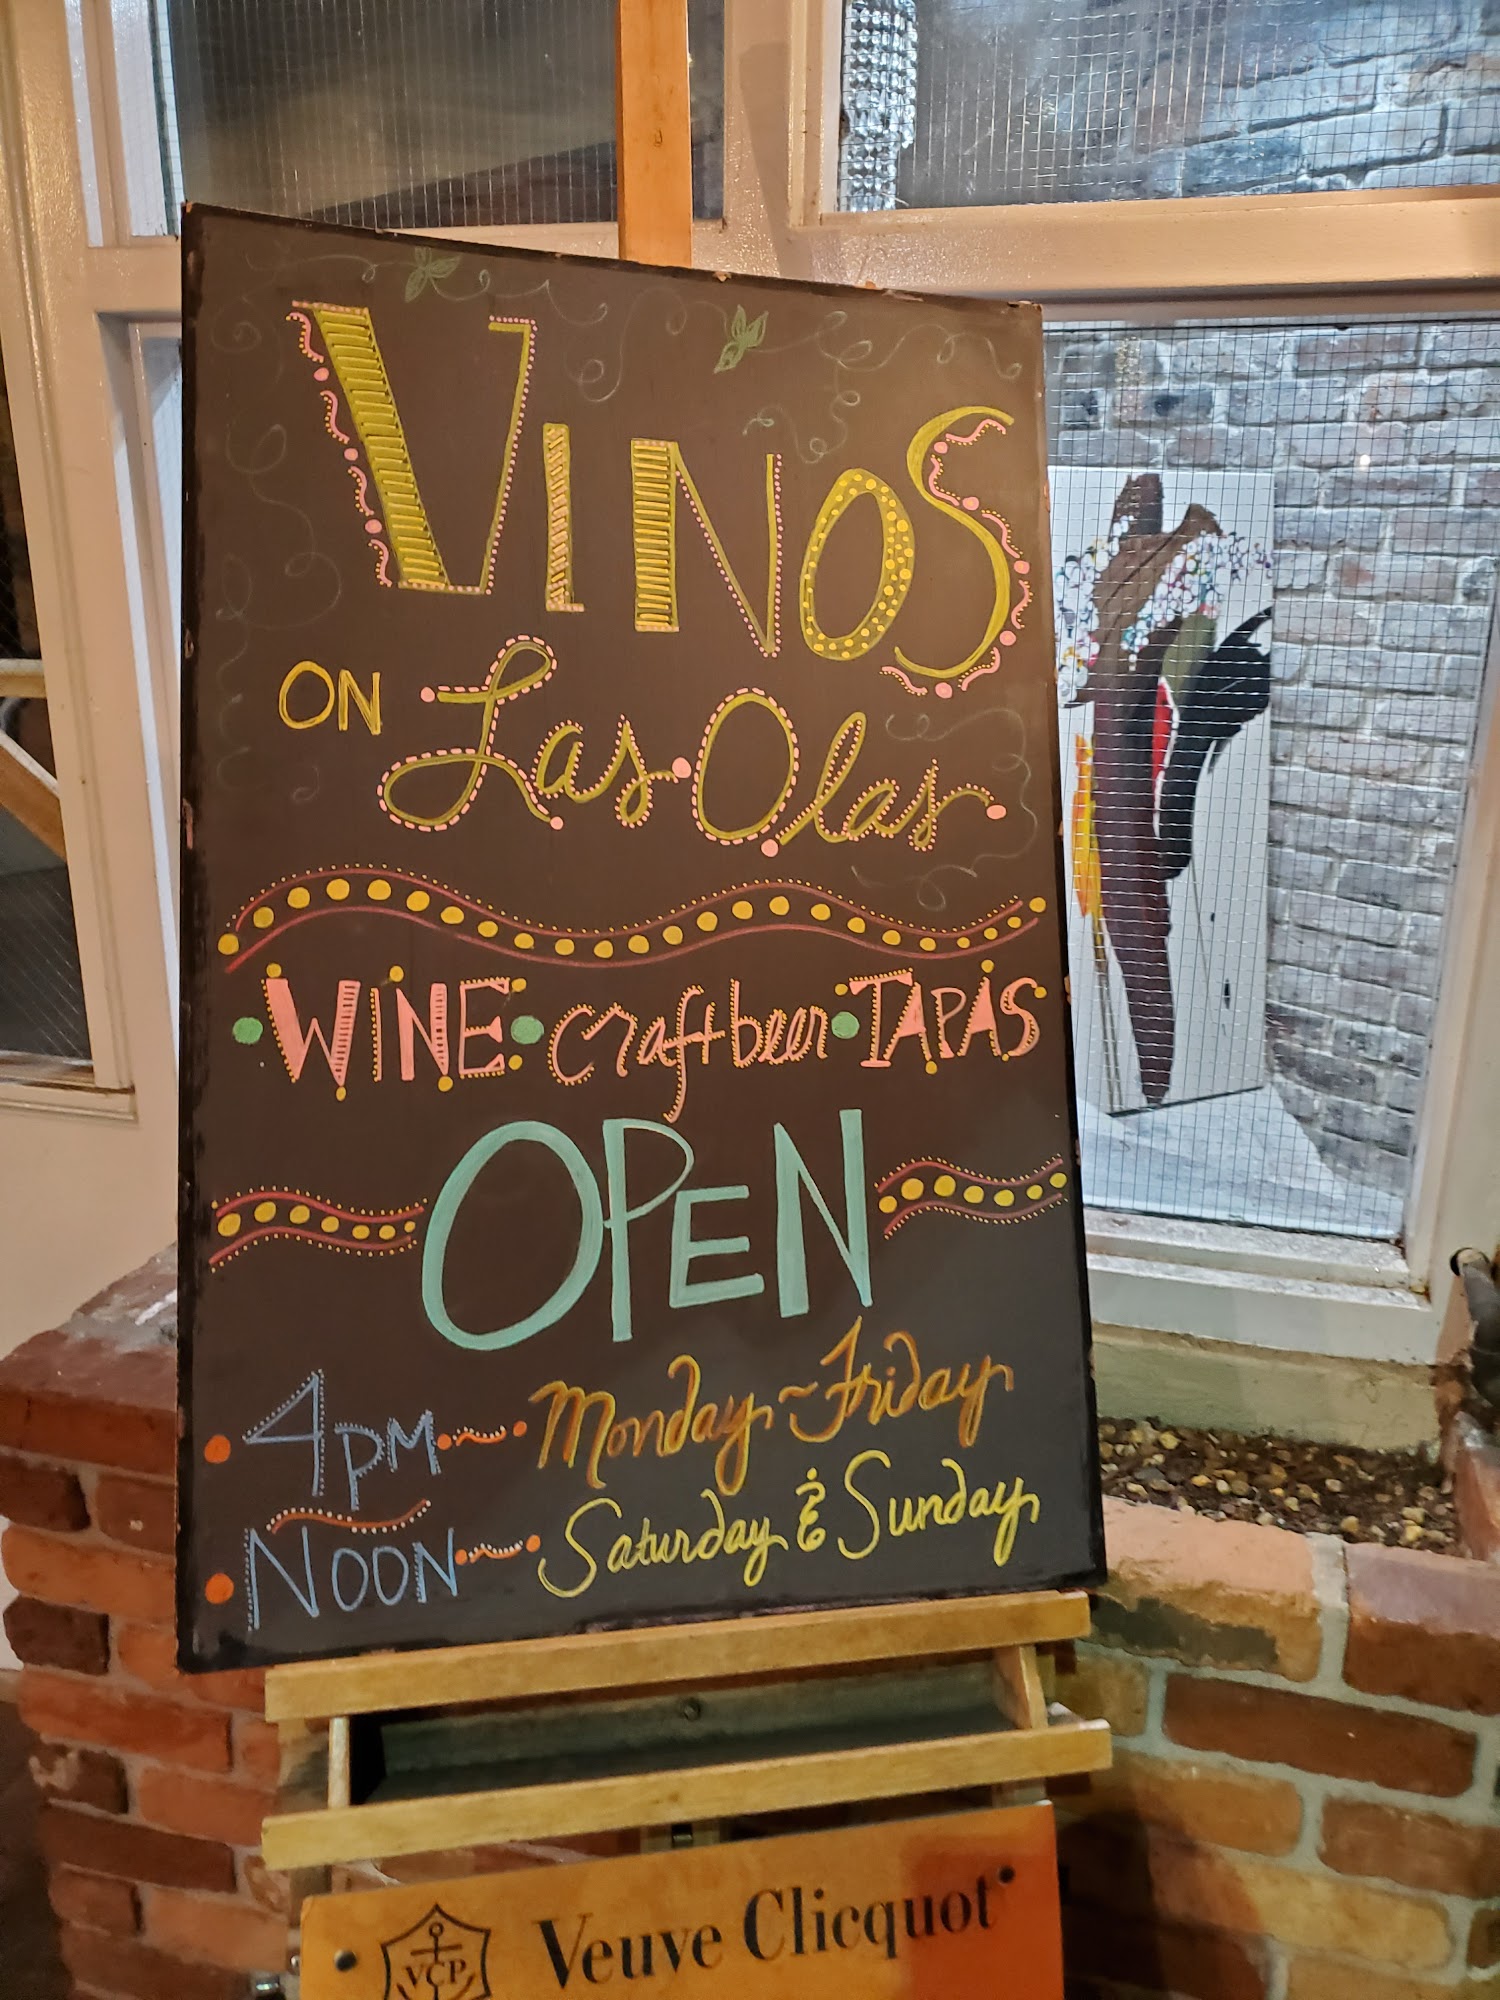 VINOS
ON Las Olas
WINE • craft beer • TAPAS
OPEN
4PM ~ Monday ~ Friday
NOON ~ Saturday & Sunday
VCP
Veuve Clicquot